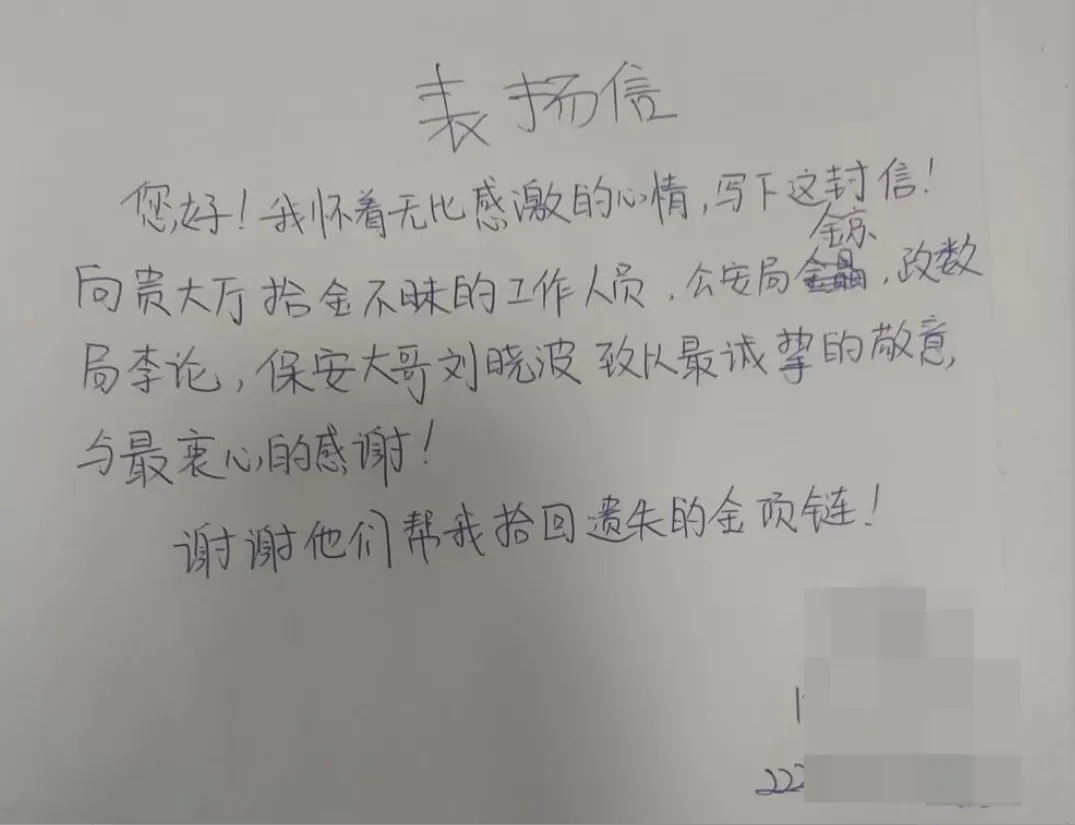 表扬信
您好！我怀着无比感激的心情，写下这封信！
向贵大厅拾金不昧的工作人员，公安局金京，政数
局李论，保安大哥刘晓波致以最诚挚的敬意，
与最衷心的感谢！
谢谢他们帮我拾回遗失的金项链！
222